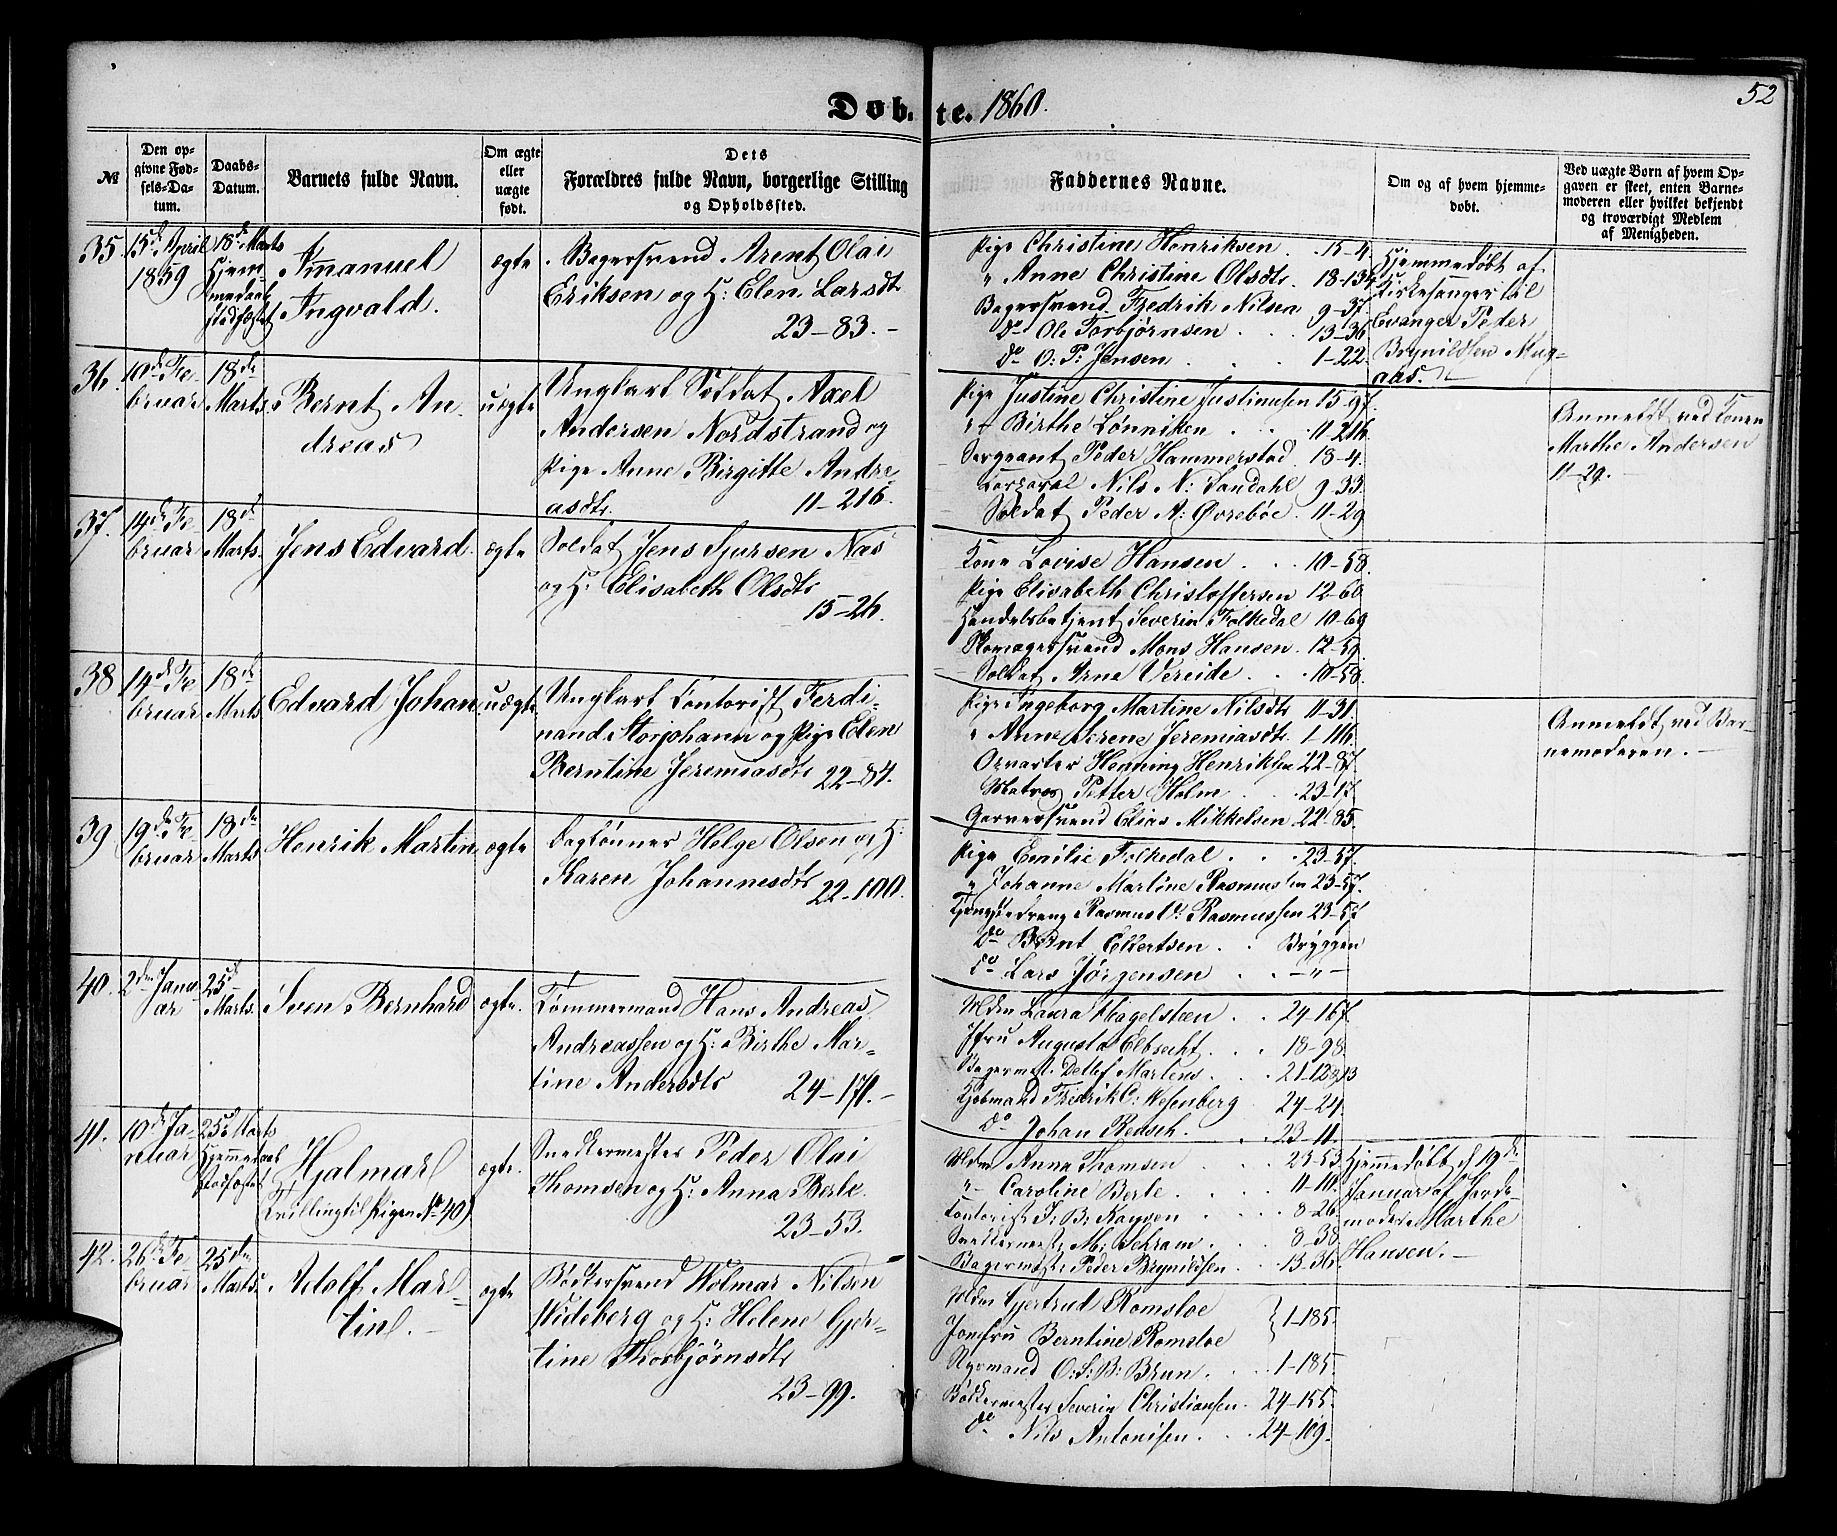 52
Døbte. 1860.
№
Den op-
givne Fød-
sels-Da-
tum.
Daabs-
Datum.
Barnets fulde Navn.
Om ægte
eller
uægte
født.
Dets
Forældres fulde Navn, borgerlige Stilling
og Opholdssted.
Faddernes Navne.
Om og af hvem hjemme-
døbt.
Ved uægte Børn af hvem Op-
gaven er skeet, enten Barne-
moderen eller hvilket bekjendt
og troværdigt Medlem
af Menigheden.
35.
15de April
1859
18de Marts
Hjem-
medaab
stadfæstet
Imanuel
Ingvald.
ægte
Bagersvend Arent Olai
Eriksen og H: Elen Larsdtr
23-83.-
Pige Christine Henriksen . 15-4.
" Anne Christine Olsdtr. 18-134
Bagersvend Fredrik Nilsen 9-37.
Do Ole Torbjørnsen . . 13-36
Do O: P: Jensen . . 1-22.
Hjemmedøbt af
Kirkesanger til
Evanger Peder
Brynildsen Mug-
aas.
36.
10de Fe-
bruar
18de
Marts.
Bernt An-
dreas
uægte
Ungkarl Soldat Axel
Andersen Nordstrand og
Pige Anne Birgitte Andre
asdtr. 11-216.
Pige Justine Christine Justinussen 15-97.
" Birthe Lønniken . . . 11-216.
Sergeant Peder Hammerstad. 18-4.
Corporal Nils N: Sandahl 9-33.
Soldat Peder A: Øvrebøe. 11-29
Anmeldt ved Konen
Marthe Andersen
11-29.-
37.
14de Fe-
bruar
18de
Marts.
Jens Edvard.
ægte
Soldat Jens Sjursen Nas
og H: Elisabeth Olsdtr
15-26.
Kone Lovise Hansen . . . 10-58.
Pige Elisabeth Christoffersen 12-60
Handelsbetjent Severin Folkedal 10-69
Skomagersvend Mons Hansen . 12-59.
Soldat Arne Vereide . . . 10-58.
38
14de Fe-
bruar
18de
Marts
Edvard Johan
uægte
Ungkarl Contorist Ferdi-
nand Storjohann og Pige Elen
Berntine Jeremiasdtr 22-84.
Pige Ingeborg Martine Nilsdtr 11-31.
" Anne Serene Jeremiasdtr. 1-116.
Opvarter Henning Henriksen 22-87.
Matros Petter Holm . . . 23-17.
Garversvend Elias Mikkelsen 22-85.
Anmeldt ved Bar-
nemoderen.-
39
19de Fe-
bruar
18de
Marts
Henrik Martin
ægte
Daglønner Helge Olsen og H:
Karen Johannesdtr 22-100.
Pige Emilie Folkedal . . . 23-57.
" Johanne Martine Rasmussen 23-57.
Tjenestedreng Rasmus O: Rasmussen 23-57
Do Bernt Ellertsen . . Bryggen
Do Lars Jørgensen . . -"-
40.
2den Janu-
ar
25de
Marts.
Sven Bernhard
ægte.
Tømmermand Hans Andreas
Andreassen og H: Birthe Mar-
tine Andersdtr 24-171.-
Mdm Laura Hagelsteen . . 24-167.
Jfru Augusta Elbrecht . . . 18-98.
Bagermest. Detlef Martens . . 21-12
Kjøbmand Fredrik C: Wesenberg 24-24.
Do Johan Reusch. . . 23-11.
41.
10de Ja-
nuar
25de Marts
Hjemmedaab
Stadfæstet
Hjalmar
(Tvilling til Pigen No 40)
ægte.
Snedkermester Peder Olai
Thomsen og H: Anna Berle.
23-53.
Mdm Anna Thomsen . . . 23-53.
"- Caroline Berle . . . 11-10.
Contorist J: B: Kayser . . . . 8-26.
Snedkermest. M: Schram . . 8-30.
Bagermest. Peder Brynildsen . . 13-36.
Hjemmedøbt d 19de
Januar af Jorde-
moder Marthe
Hansen.-
42.
26de Fe-
bruar
25de
Marts.
Adolf Mar-
tin.-
ægte
Bødkersvend Wolmar Nilsen
Wideberg og H: Helene Gjer-
tine Thorbjørnsdtr
23-99.
Mdm Gjertrud Romsloe
Jomfru Berntine Romsloe } 1-185.
Styrmand O: S: B: Brun . . . 1-185.
Bødkermester Severin Christiansen . 24-155.
do Nils Antonisen . . . 24-109.